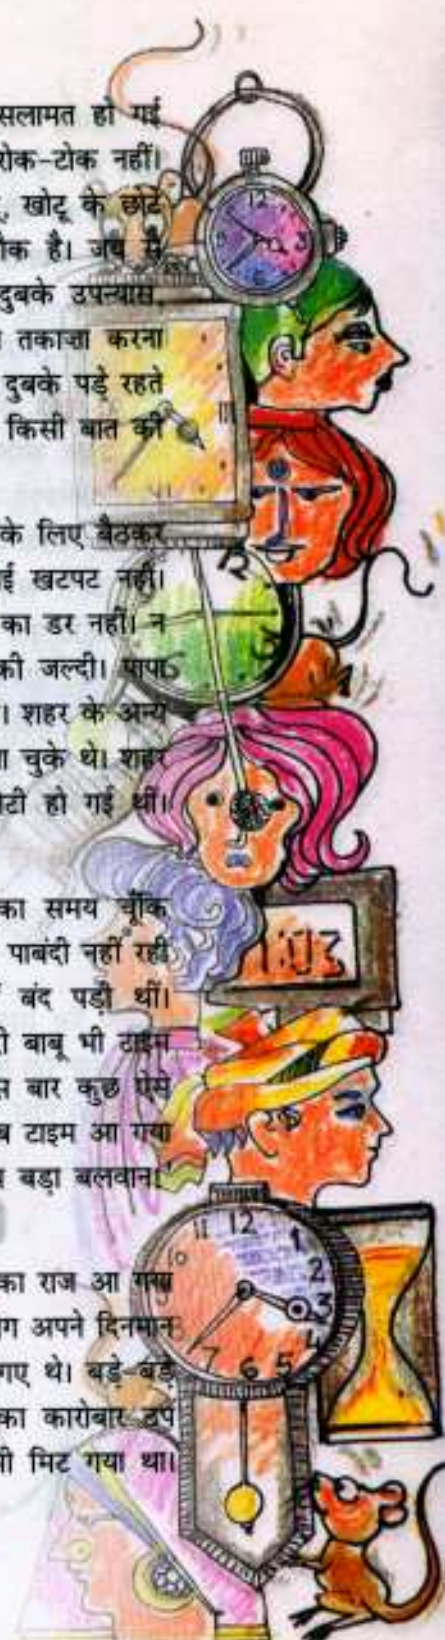 सलामत हो गई
रोक-टोक नहीं।
खोटू के छोटे
है। जब से
दुबके उपन्यास,
तकाज़ा करना
दुबके पड़े रहते
किसी बात की
के लिए बैठकर
खटपट नहीं।
का डर नहीं। न
की जल्दी। पापा
। शहर के अन्य
चुके थे। शहर
हो गई थीं।
का समय चूँकि
पाबंदी नहीं रही
बंद पड़ी थीं।
बाबू भी टाइम
बार कुछ ऐसे
टाइम आ गया
बड़ा बलवान।'
का राज आ गया
अपने दिनमान
गए थे। बड़े-बड़े
का कारोबार ठप
मिट गया था।
12
3
6
III
VI
12
6
1:03
11 12 1
10 2
9 3
4
7 6 5